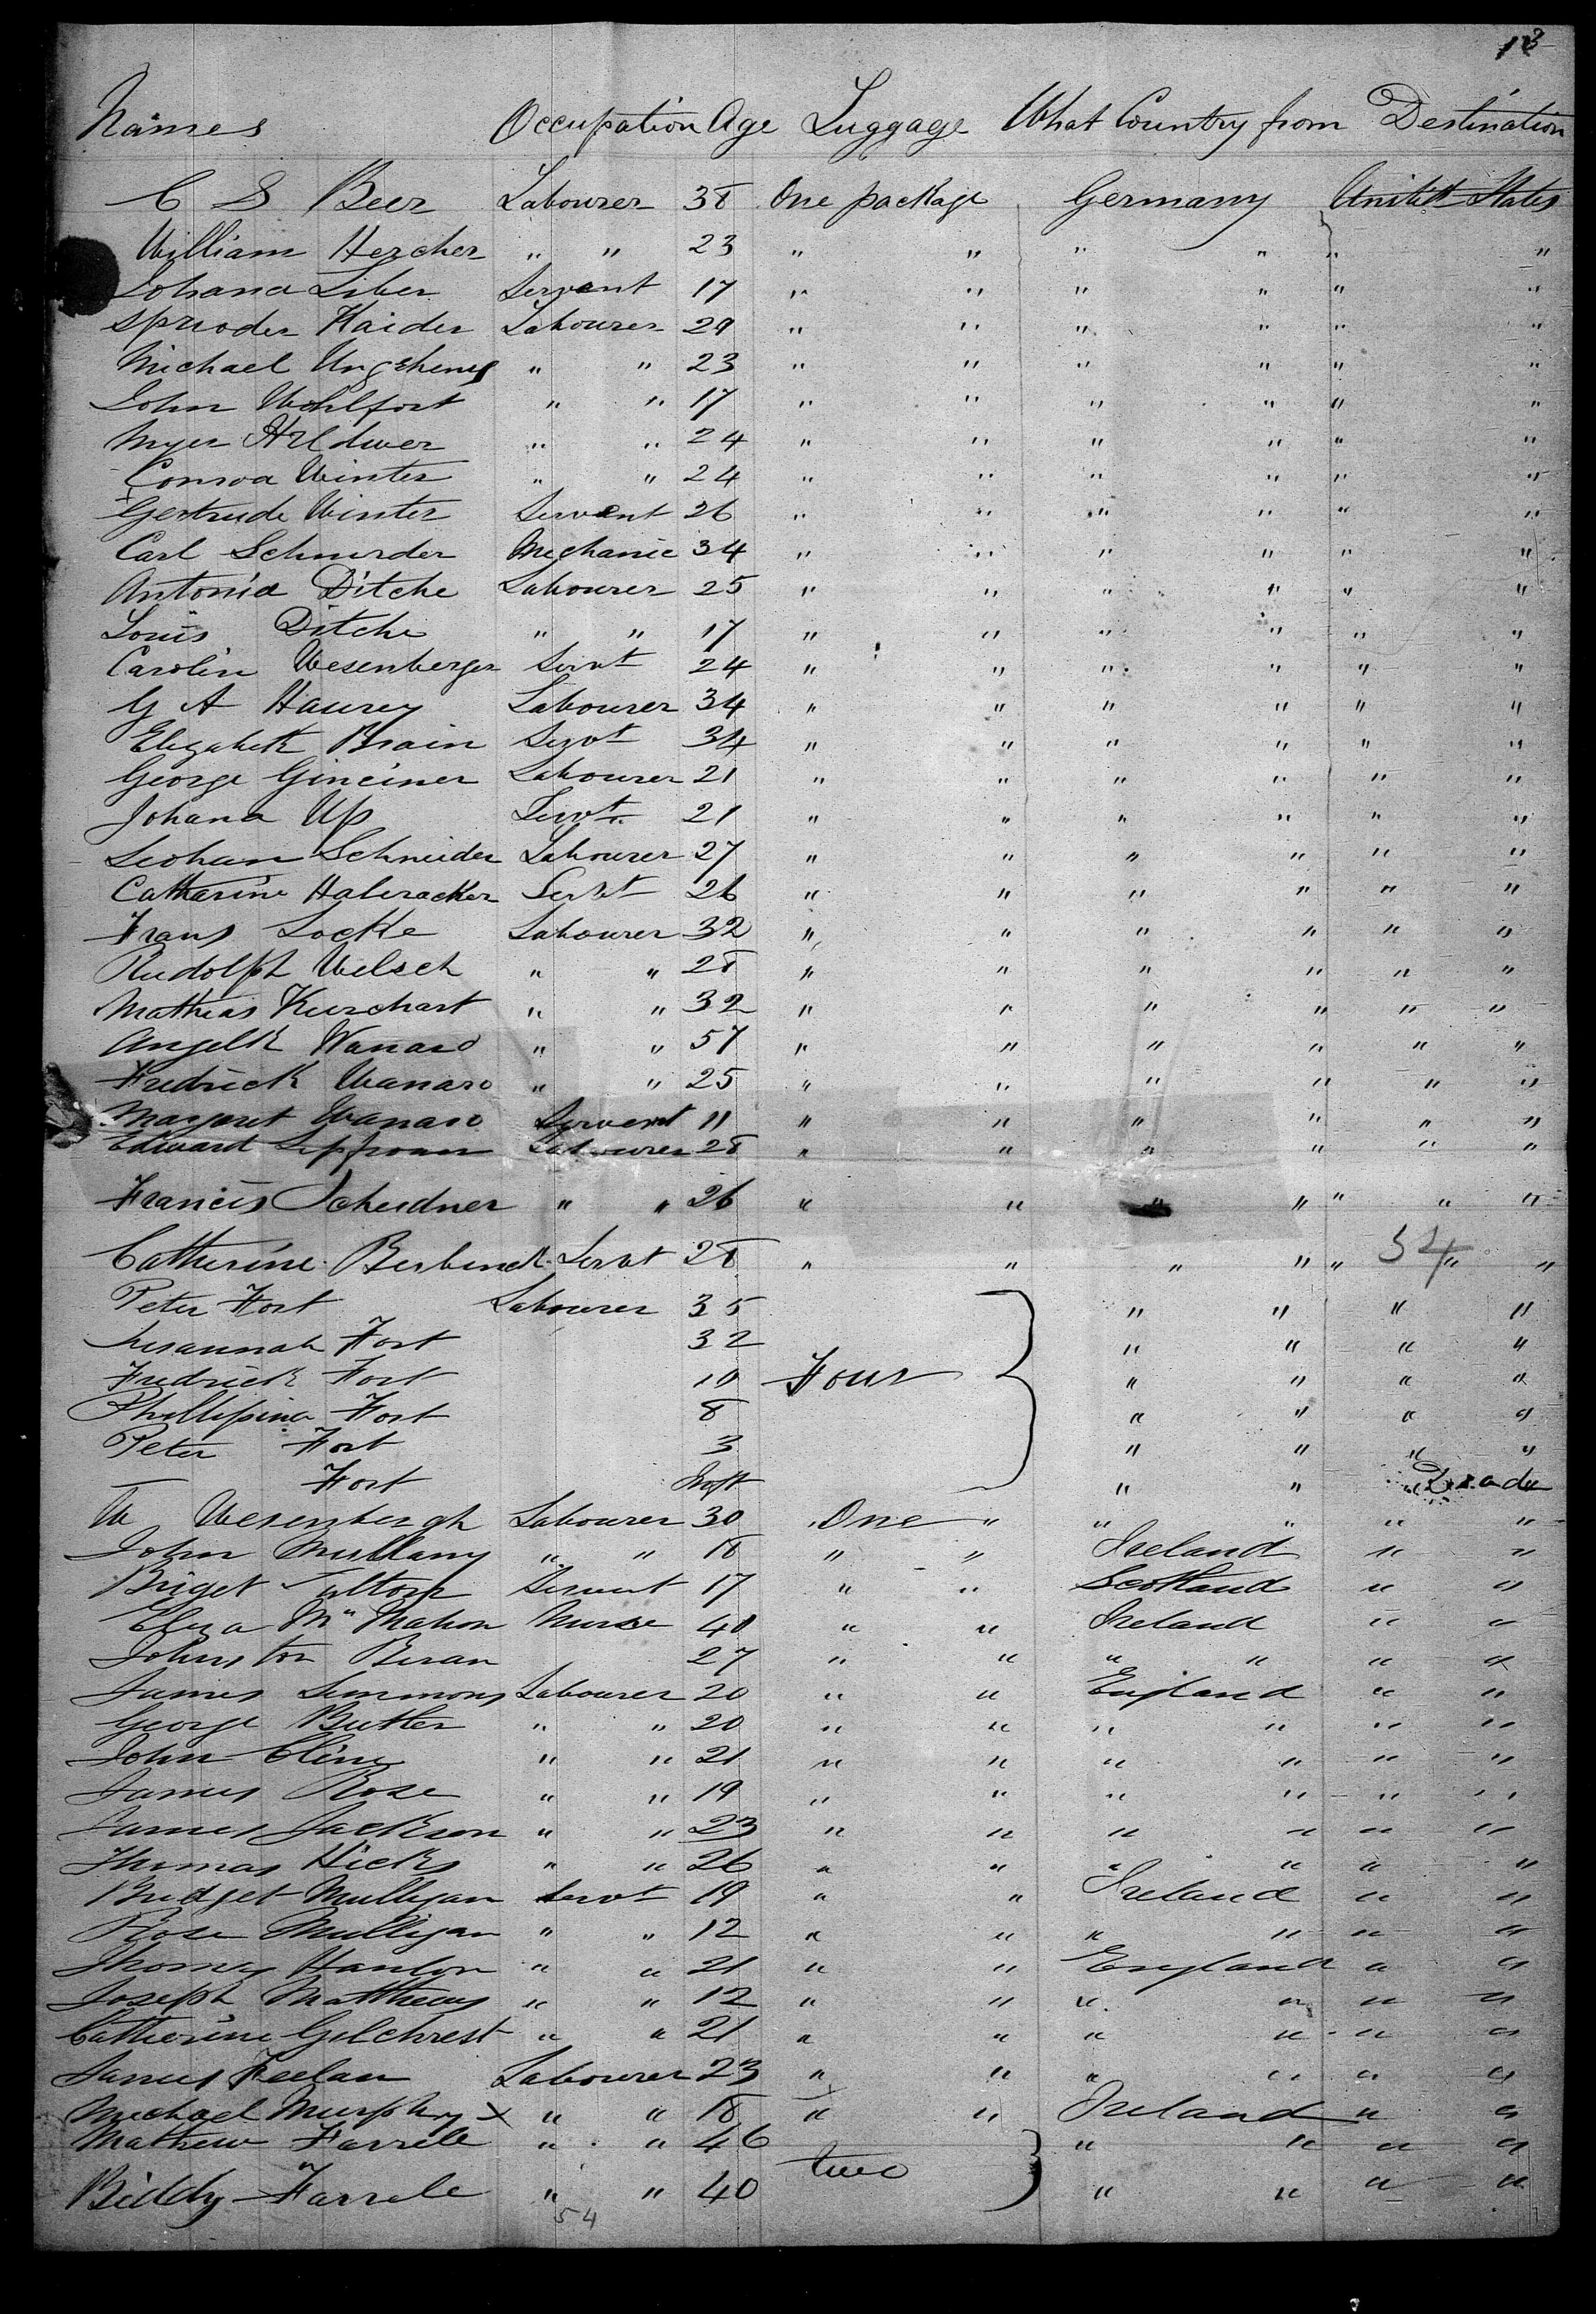 13
Names Occupation Age Luggage What Country from Destination
C S Beer Labourer 38 One package Germany United States
William Hercher " " 23 " " " " " "
Johana Liber Servent 17 " " " " " "
Haider Labourer 29 " " " " " "
Michael " " 23 " " " " " "
John Wohlfort " " 17 " " " " " "
Myer " " 24 " " " " " "
Conrod Winter " " 24 " " " " " "
Gertrude Winter Servent 26 " " " " " "
Carl Schnurder Mechanic 34 " " " " " "
Antonia Ditche Labourer 25 " " " " " "
Louis Ditche " " 17 " " " " " "
Carolin Wesenberger Servt 24 " " " " " "
G A Haurey Labourer 34 " " " " " "
Elizabeth Brain Servt 34 " " " " " "
George Ginciner Labourer 21 " " " " " "
Johana Up Servt 21 " " " " " "
Leohan Schneider Labourer 27 " " " " " "
Catharine Haberacker Servt 26 " " " " " "
Frans Lockle Labourer 32 " " " " " "
Rudolph Welsch " " 28 " " " " " "
Mathias Kurchart " " 32 " " " " " "
Angelk Wanaro " " 57 " " " " " "
Fredrick Wanaro " " 25 " " " " " "
Margaret Wanaro Servent 11 " " " " " "
Edward Labourer 28 " " " " " "
Francis Scheidner " " 26 " " " " " " "
Catherine Servt 28 " " " " " 54 " "
Peter Fort Labourer 35 " " " "
Susannah Fort 32 " " " "
Fredrick Fort 10 Four " " " "
Phillipina Fort 8 " " " "
Peter Fort 3 " " " "
Fort Inft " " "
W Wesenbergh Labourer 30 One " " " " "
John Mullany " " 18 " " Ireland " "
Briget Fulton Servent 17 " " Scotland " "
Eliza Mc Mahon Nurse 40 " " Ireland " "
Johnston Beran 27 " " " " " "
James Simmons Labourer 20 " " England " "
George Butler " " 20 " " " " " "
John Cline " " 21 " " " " " "
James Rose " " 19 " " " " " "
James Jackson " " 23 " " " " " "
Thomas Hicks " " 26 " " " " " "
Bridget Mulligan Servt 19 " " Ireland " "
Rose Mulligan " " 12 " " " " " "
Thomas Hanlon " " 21 " " England " "
Joseph Matthews " " 12 " " " " " "
Catherine Gilchrest " " 21 " " " " " "
James Feelan Labourer 23 " " " " " "
Michael Murphy x " " 18 " " Ireland " "
Mathew Farrele " " 46 " " " "
Biddy Farrele " " 40 two " " " "
54